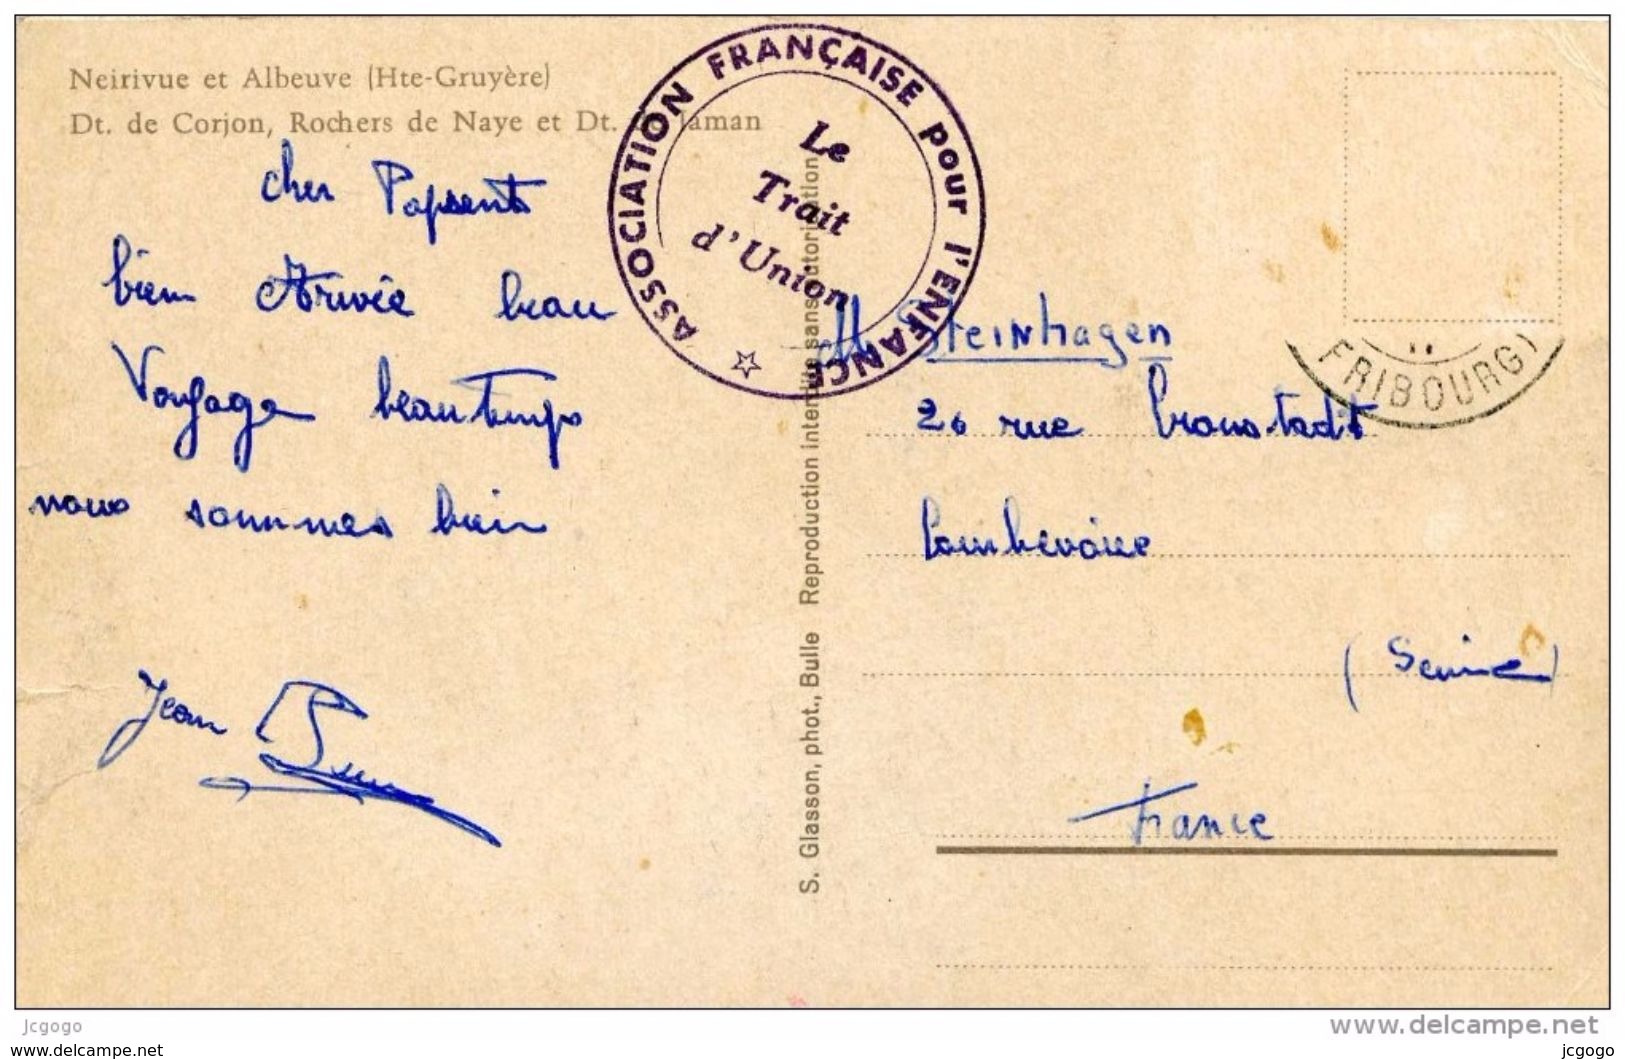 Neirivue et Albeuve (Hte-Gruyère)
Dt. de Corjon, Rochers de Naye et Dt. Jaman
ASSOCIATION FRANÇAISE pour l'ENFANCE
Le
Trait
d'Union
cher
bien Arivée beau
Voyage beau temps
nous sommes bien
Jean
S. Glasson, phot., Bulle Reproduction interdite sans autorisation
M. Steinhagen
20 rue
(Seine)
France
FRIBOURG)
jcgogo
jcgogo
www.delcampe.net
jcgogo
jcgogo